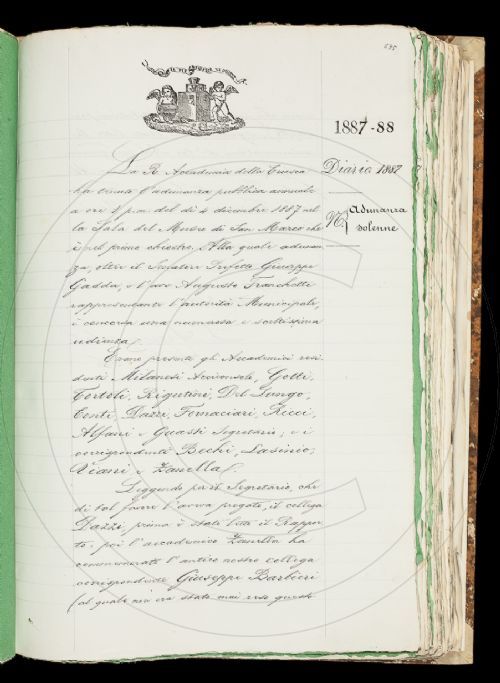 695
1887-88
Diario 1887
Adunanza
solenne
La R. Accademia della Crusca
ha tenuto l'adunanza pubblica annuale
a ore 1 p.m. del dì 4 dicembre 1887 nel
la Sala del Museo di San Marco che
è nel primo chiostro. Alla quale adunan
za, oltre il Senatore Prefetto Giuseppe
Gadda, e l'avv. Augusto Franchetti
rappresentante l'autorità Municipale,
è concorsa una numerosa e sceltissima
udienza.
Erano presenti gli Accademici resi
denti Milanesi Arciconsolo, Gotti,
Tortoli, Rigutini, Del Lungo,
Conti, Dazzi, Fornaciari, Ricci,
Alfani e Guasti Segretario, e i
corrispondenti Bechi, Lasinio,
Viani e Zanella.
Leggendo per il Segretario, che
di tal favore l'aveva pregato, il collega
Dazzi, prima è stato letto il Rappor
to, poi l'accademico Zanella ha
commemorato l'antico nostro collega
corrispondente Giuseppe Barbieri
(al quale non era stato mai reso questo